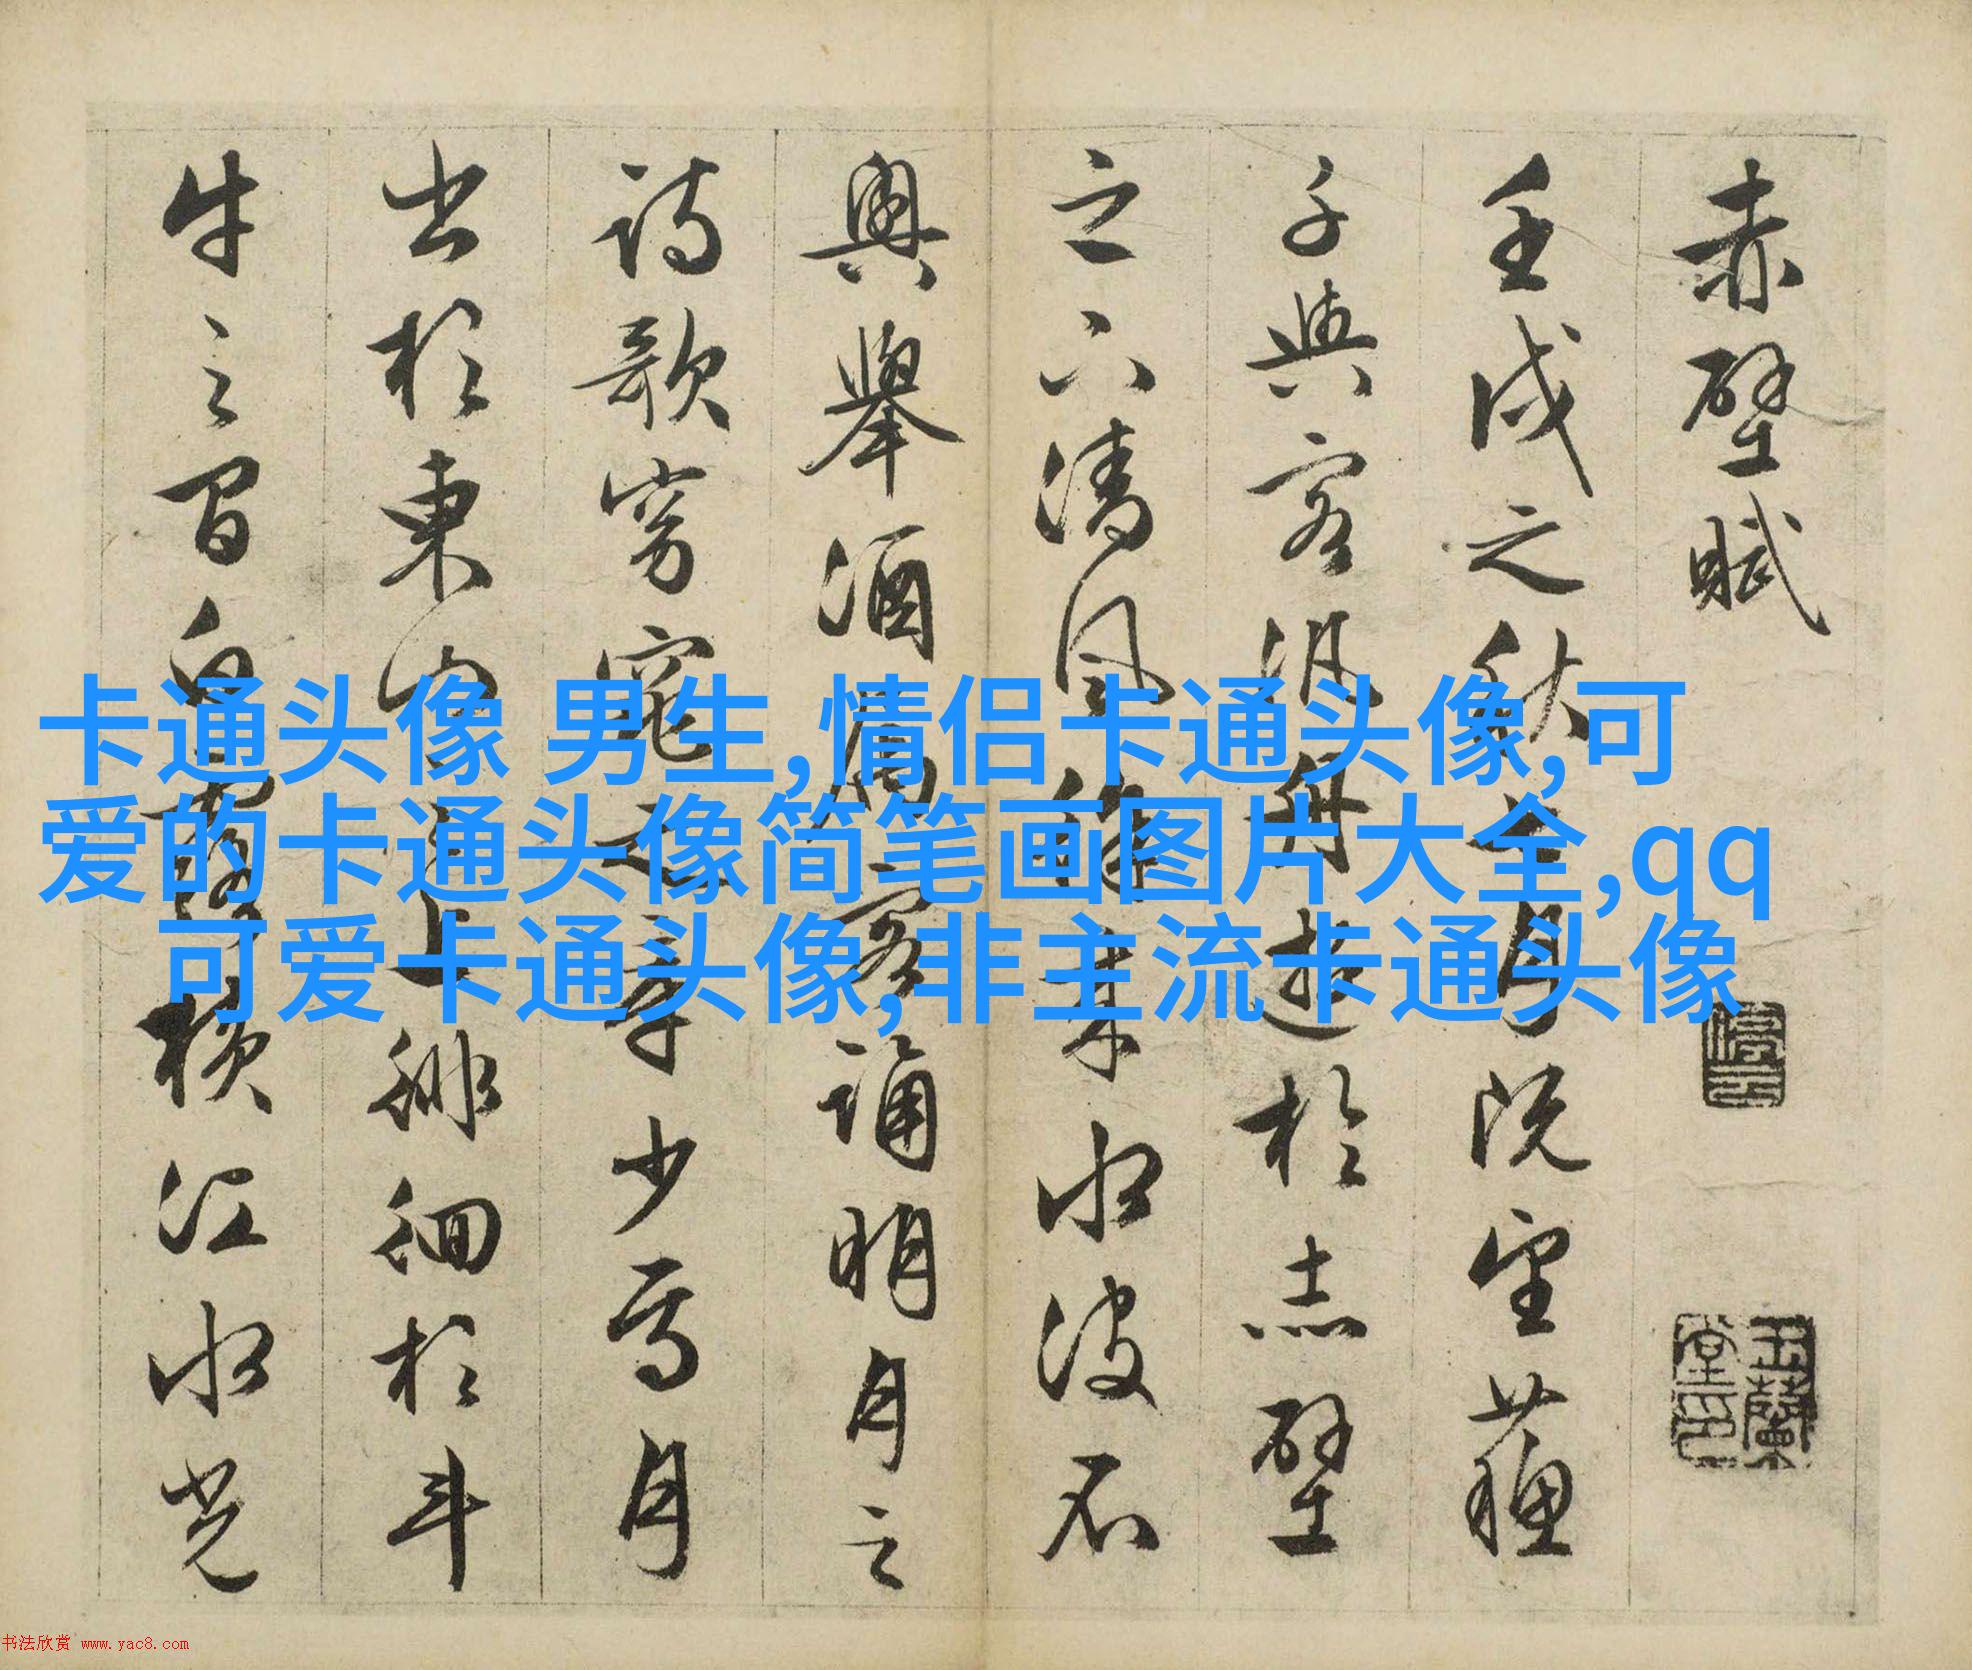 赤壁賦
壬戌之秋七月既望蘇
子與客汎舟遊於赤壁
之下清風徐来水波不
興舉酒屬客誦明月之
詩歌窈窕之章少焉月
出於東山之上徘徊於斗
牛之間白露橫江水光
停雲
玉蘭堂印
卡通头像 男生,情侣卡通头像,可
爱的卡通头像简笔画图片大全,qq
可爱卡通头像,非主流卡通头像
书法欣赏 www.yac8.com